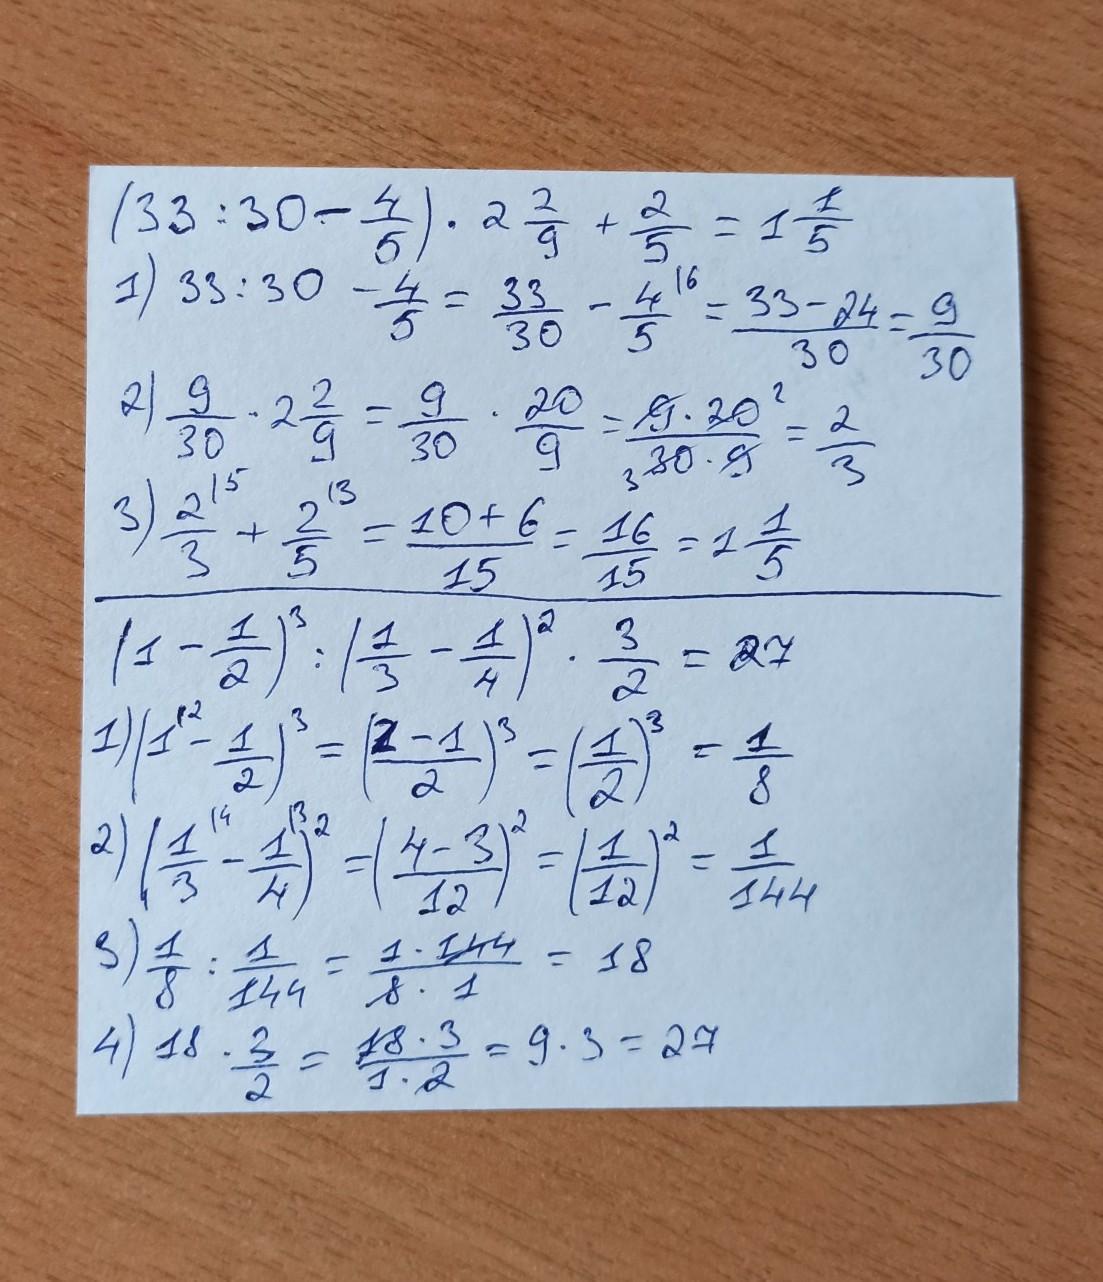 (33 : 30 - 4/5) · 2 2/9 + 2/5 = 1 1/5
1) 33 : 30 - 4/5 = 33/30 - 4/5 \6 = (33 - 24)/30 = 9/30
2) 9/30 · 2 2/9 = 9/30 · 20/9 = (9 · 20 2)/(3 30 · 9) = 2/3
3) 2/3 \5 + 2/5 \3 = (10 + 6)/15 = 16/15 = 1 1/5
(1 - 1/2)³ : (1/3 - 1/4)² · 3/2 = 27
1) (1 \2 - 1/2)³ = ((2 - 1)/2)³ = (1/2)³ = 1/8
2) (1/3 \4 - 1/4 \3)² = ((4 - 3)/12)² = (1/12)² = 1/144
3) 1/8 : 1/144 = (1 · 144)/(8 · 1) = 18
4) 18 · 3/2 = (18 · 3)/(1 · 2) = 9 · 3 = 27